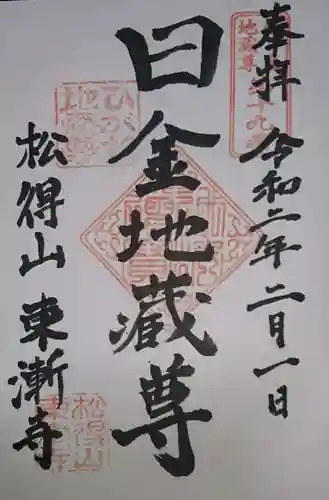 奉拝 令和二年二月一日
日金地蔵尊
松得山 東漸寺
地蔵尊